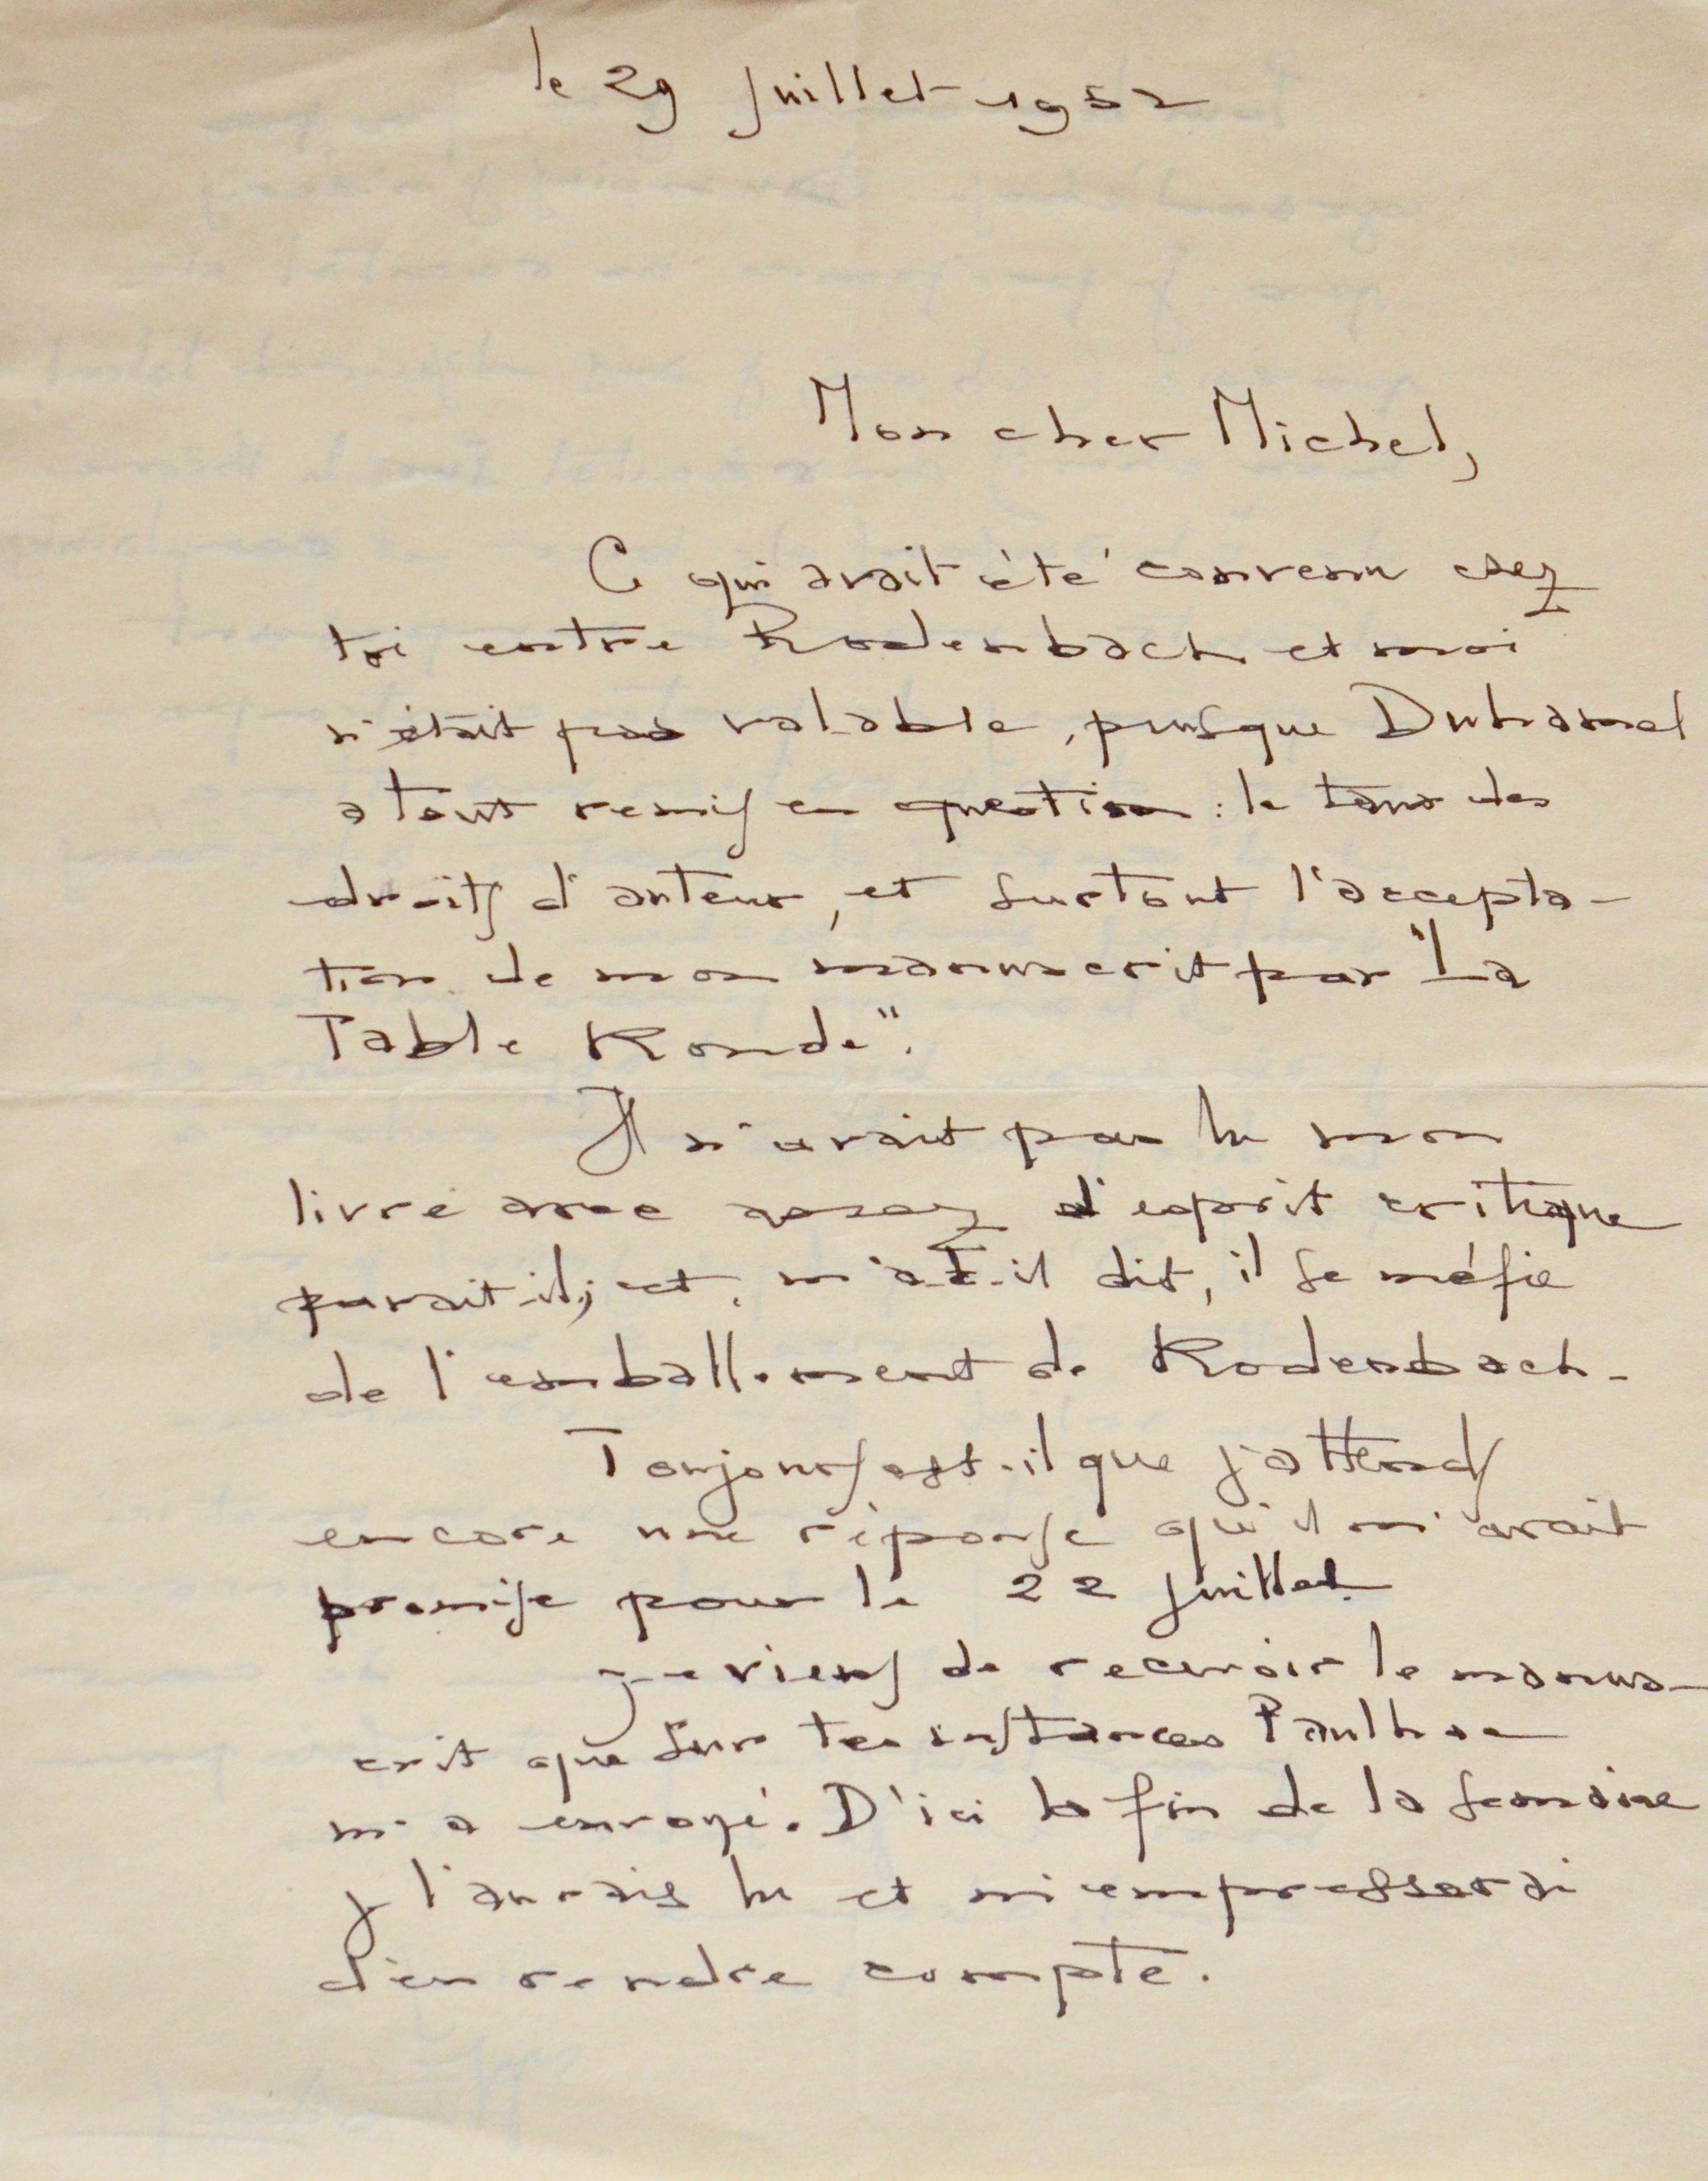 le 29 Juillet 1952
Mon cher Michel,
Ce qui avait été convenu chez
toi entre Rodenbach et moi
n'était pas valable, puisque Duhamel
a tout remis en question : le taux des
droits d'auteur, et surtout l'accepta-
tion de mon manuscrit par "La
Table Ronde".
Il n'avait pas lu mon
livre avec assez d'esprit critique
parait-il; et, m'a-t-il dit, il se méfie
de l'emballement de Rodenbach.
Toujours est-il que j'attends
encore une réponse qu'il m'avait
promise pour le 22 juillet.
Je viens de recevoir le manus-
crit que sur tes instances Paulhan
m'a envoyé. D'ici la fin de la semaine
je l'aurais lu et m'empresserai
d'en rendre compte.